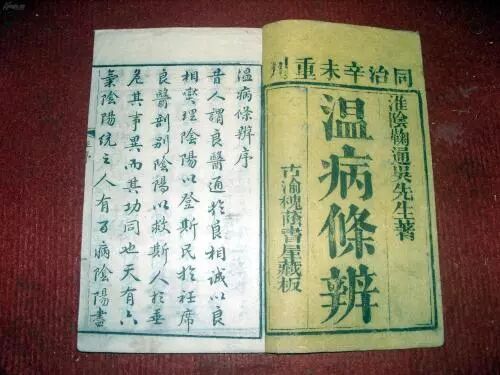 同治辛未重刋
淮陰鞠通吳先生著
温病條辨
古渝槐蔭書屋藏板
温病條辨序
昔人謂良醫通於良相誠以良
相燮理陰陽以登斯民於衽席
良醫剖別陰陽以救斯人於垂
危其事異而其功同也天有六
氣陰陽統之人有百病陰陽盡